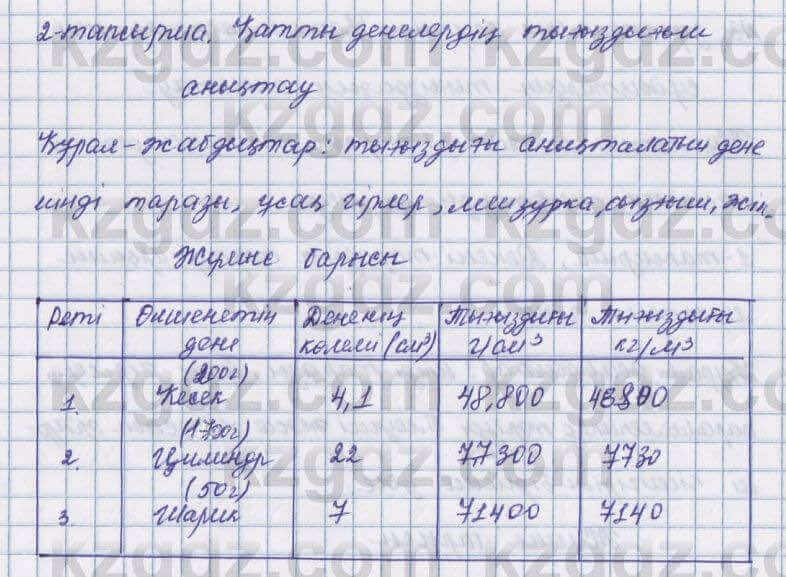 2-тапсырма. Қатты денелердің тығыздығын
анықтау
Құрал-жабдықтар: тығыздығы анықталатын дене
иінді таразы, ұсақ гірлер, мензурка, сызғыш, жіп.
Жұмыс барысы
Реті Өлшенетін дене Дененің көлемі (см³) Тығыздығы г/см³ Тығыздығы кг/м³
1. (200г) Кесек 4,1 48,800 48800
2. (170г) Цилиндр 22 7,7300 7730
3. (50г) Шарик 7 71400 7140
kzgdz.com